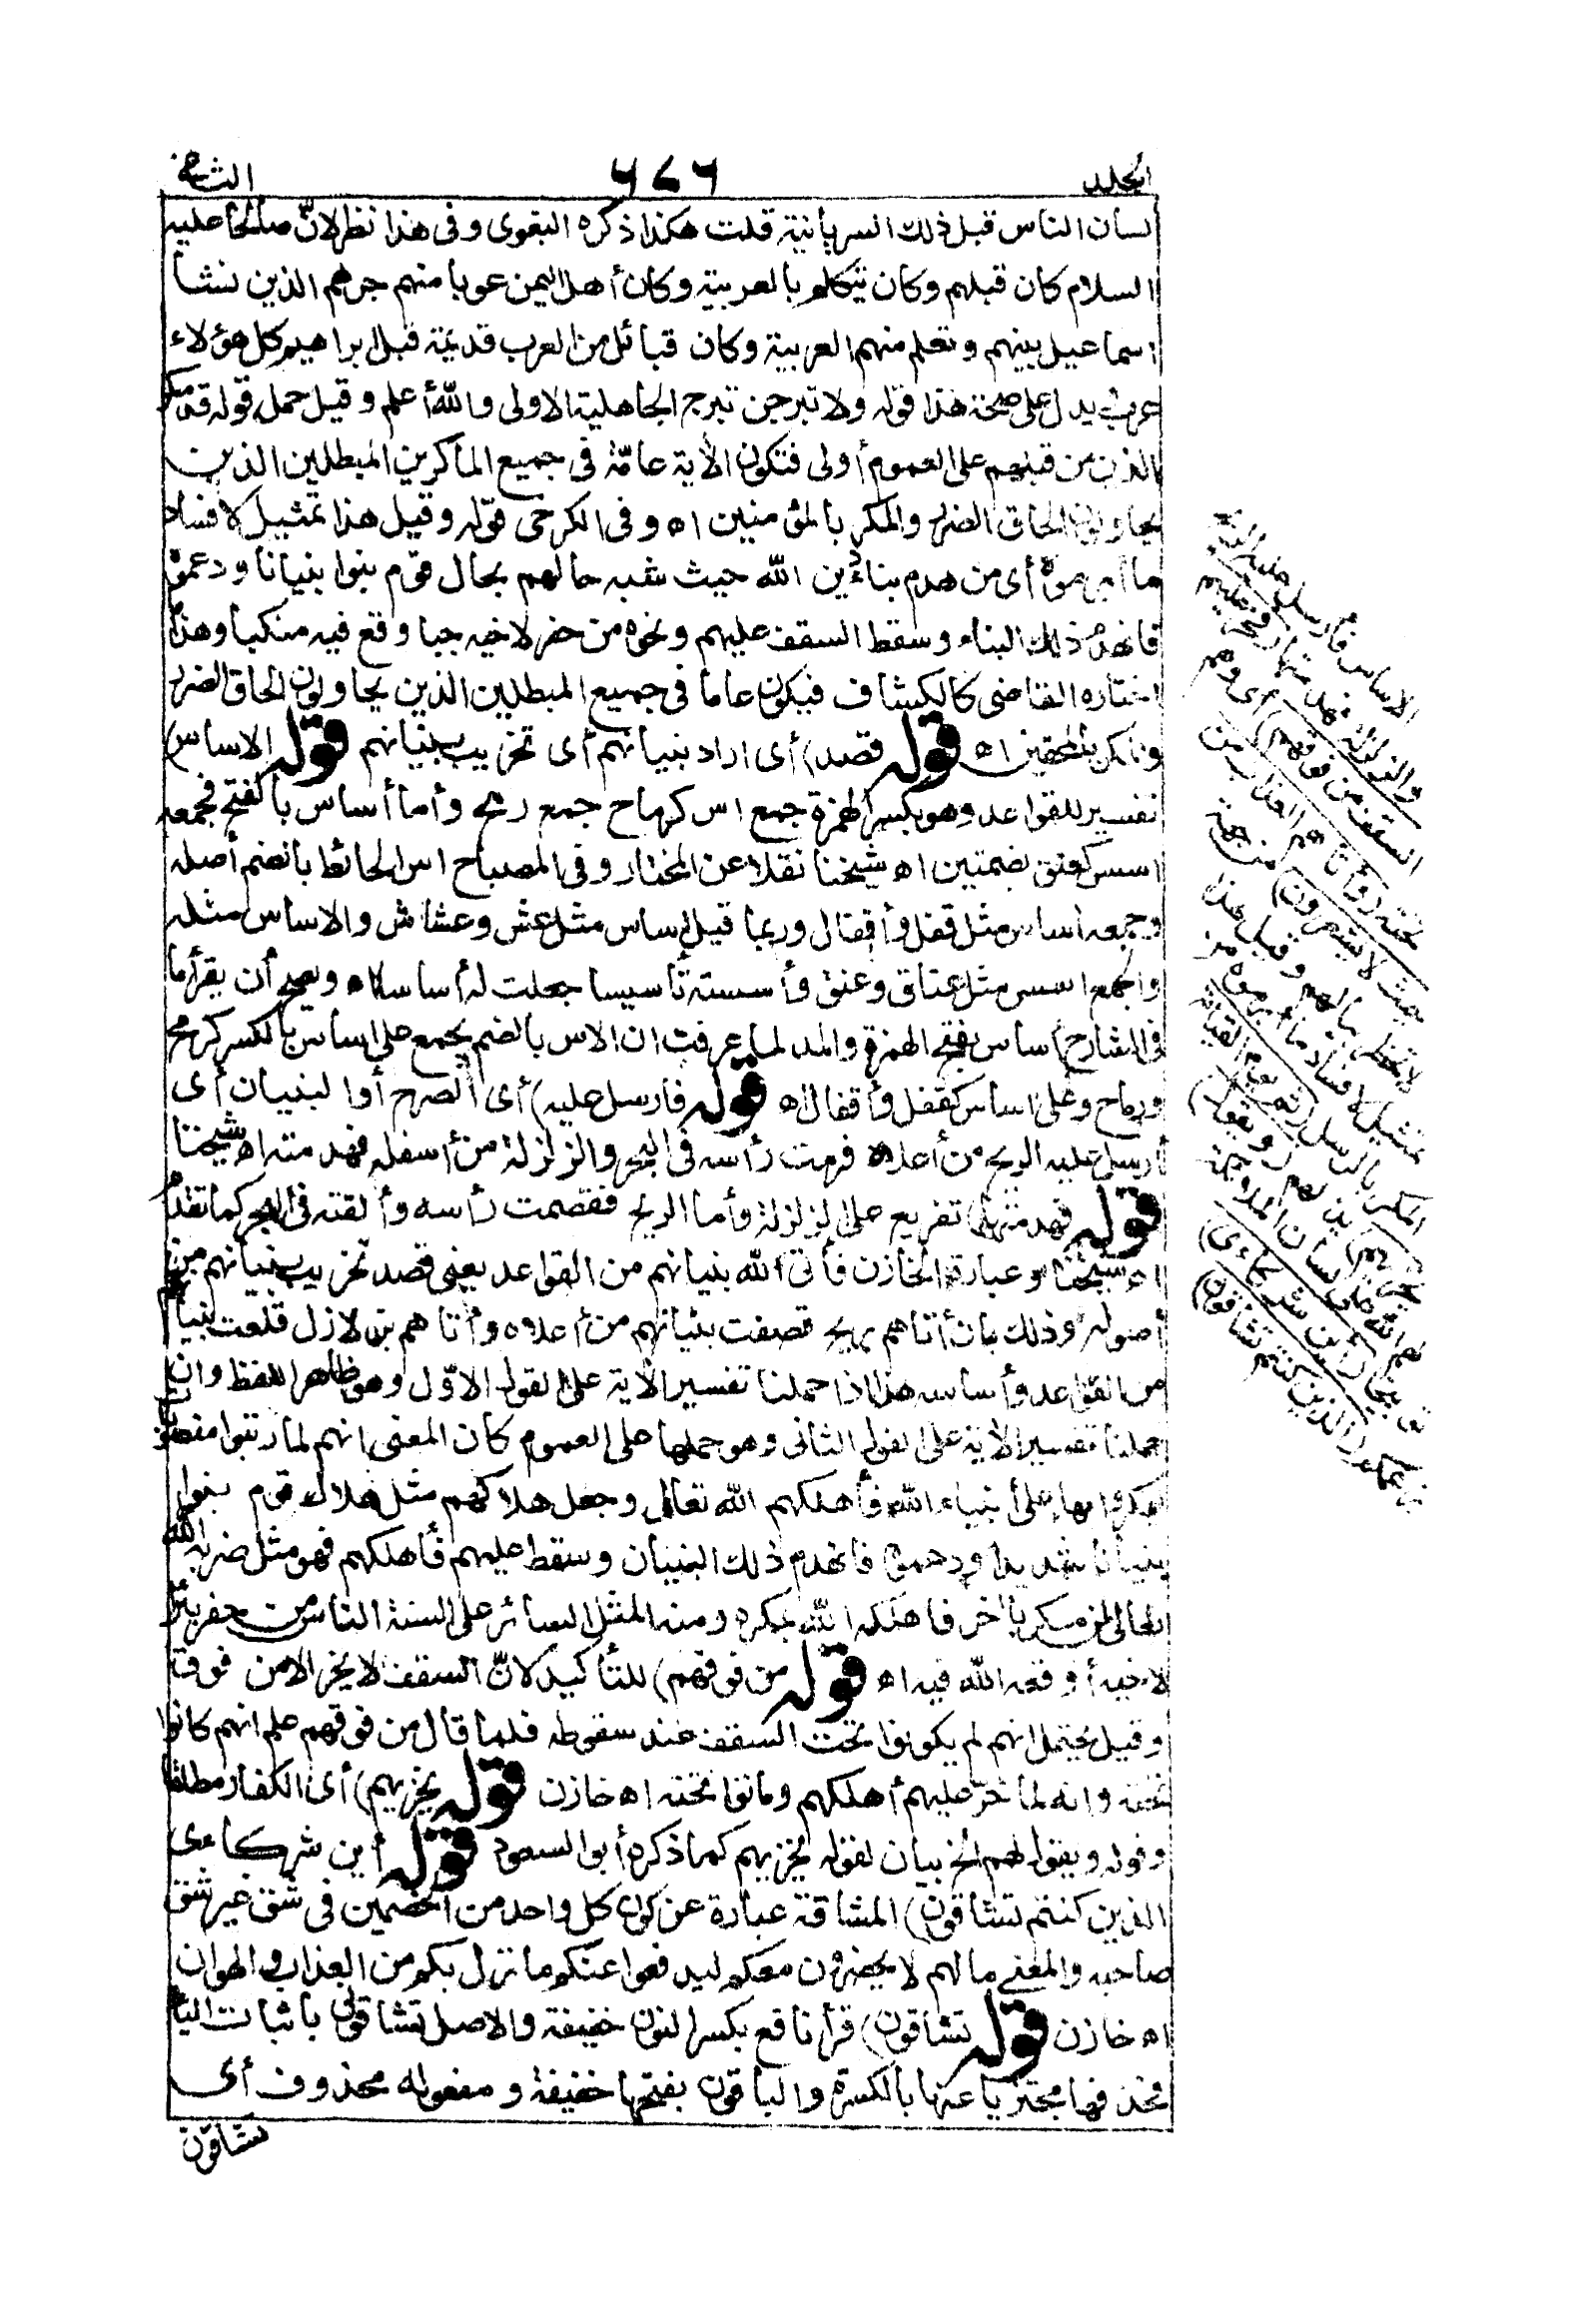 الجلد ٦٧٦ الثاني
لسان الناس قبل ذلك السريانية قلت هكذا ذكره البغوى وفى هذا نظر لانّ صالحا عليه
السلام كان قبلهم وكان يتكلم بالعربية وكان أهل اليمن عربا منهم جرهم الذين نشأ
اسماعيل بينهم وتعلم منهم العربية وكان قبائل من العرب قديمة قبل ابراهيم كل هؤلاء
عرب يدل على صحة هذا قوله ولا تبرجن تبرج الجاهلية الاولى والله أعلم وقيل حمل قوله قد مكر
الذين من قبلهم على العموم أولى فتكون الآية عامّة فى جميع الماكرين المبطلين الذين
يحاولون الحاق الضرر والمكر بالمؤمنين اه وفى الكرخى قوله وقيل هذا تمثيل لافساد
ما أبرموه أى من هدم بناء دين الله حيث شبه حالهم بحال قوم بنوا بنيانا ودعموه
فانهدم ذلك البناء وسقط السقف عليهم ونحوه من حفر لاخيه جبا وقع فيه منكبا وهذا
اختاره القاضى كالكشاف فيكون عاما فى جميع المبطلين الذين يحاولون الحاق الضرر
والمكر بالمحقين اه قوله قصد) أى اراد بنيانهم أى تخريب بنيانهم قوله الاساس)
تفسير للقواعد وهو بكسر الهمزة جمع اس كرماح جمع رمح وأما أساس بالفتح فجمعه
اسس كعنق بضمتين اه شيخنا نقلا عن المختار وفى المصباح اس الحائط بالضم أصله
وجمعه آساس مثل قفل وأقفال وربما قيل إساس مثل عش وعشاش والاساس مثله
والجمع اسس مثل عناق وعنق وأسسته تأسيسا جعلت له أساسا اه ويصح أن يقرأ ما
فى الشارح آساس بفتح الهمزة والمد لما عرفت ان الاس بالضم يجمع على اساس بالكسر كرمح
ورماح وعلى آساس كقفل وأقفال اه قوله فارسل عليه) أى الصرح أو البنيان أى
أرسل عليه الريح من أعلاه فرمت رأسه فى البحر والزلزلة من أسفله فهدمته اه شيخنا
قوله فهدمتها) تفريع على الزلزلة وأما الريح فقصمت رأسه وألقته فى البحر كما تقدم
اه شيخنا وعبارة الخازن فأتى الله بنيانهم من القواعد يعنى قصد تخريب بنيانهم من
أصوله وذلك بان أتاهم بريح قصفت بنيانهم من أعلاه وأتاهم بزلازل قلعت بنيانهم
من القواعد وأساسه هذا اذا حملنا تفسير الآية على القول الاوّل وهو ظاهر اللفظ وان
حملنا تفسير الآية على القول الثانى وهو حملها على العموم كان المعنى انهم لما رتبوا منصوبات
ليمكروا بها على أنبياء الله فأهلكهم الله تعالى وجعل هلاكهم مثل هلاك قوم بنوا
بنيانا شديدا ودعموه فانهدم ذلك البنيان وسقط عليهم فأهلكهم فهو مثل ضربه الله
تعالى لمن مكر بآخر فاهلكه الله بمكره ومنه المثل السائر على ألسنة الناس من حفر بئرا
لاخيه أوقعه الله فيه اه قوله من فوقهم) للتأكيد لانّ السقف لا يخر الا من فوق
وقيل يحتمل انهم لم يكونوا تحت السقف عند سقوطه فلما قال من فوقهم علم انهم كانوا
تحته وانه لما خرّ عليهم أهلكهم وماتوا تحته اه خازن قوله يخزيهم) أى الكفار مطلقا
وقوله ويقول لهم الخ بيان لقوله يخزيهم كما ذكره أبو السعود قوله أين شركاءى
الذين كنتم تشاقون) المشاقة عبارة عن كون كل واحد من الخصمين فى شق غير شق
صاحبه والمعنى ما لهم لا يحضرون معكم ليدفعوا عنكم ما نزل بكم من العذاب والهوان
اه خازن قوله تشاقون) قرأ نافع بكسر النون خفيفة والاصل تشاقونى باثبات الياء
فحذفها مجتزيا عنها بالكسرة والباقون بفتحها خفيفة ومفعوله محذوف أى
تشاقون
الاساس فأرسل عليه الريح
والزلزلة فهدمتها فخر عليهم
السقف من فوقهم) أى وهم
تحته (وأتاهم العذاب من
حيث لا يشعرون) من جهة
لا تخطر ببالهم وقيل هذا
تمثيل لافساد ما أبرموه من
المكر بالرسل (ثم يوم القيامة
يخزيهم) يذلهم (ويقول)
لهم الله على لسان الملائكة
توبيخا (أين شركاءى)
بزعمكم (الذين كنتم تشاقون)